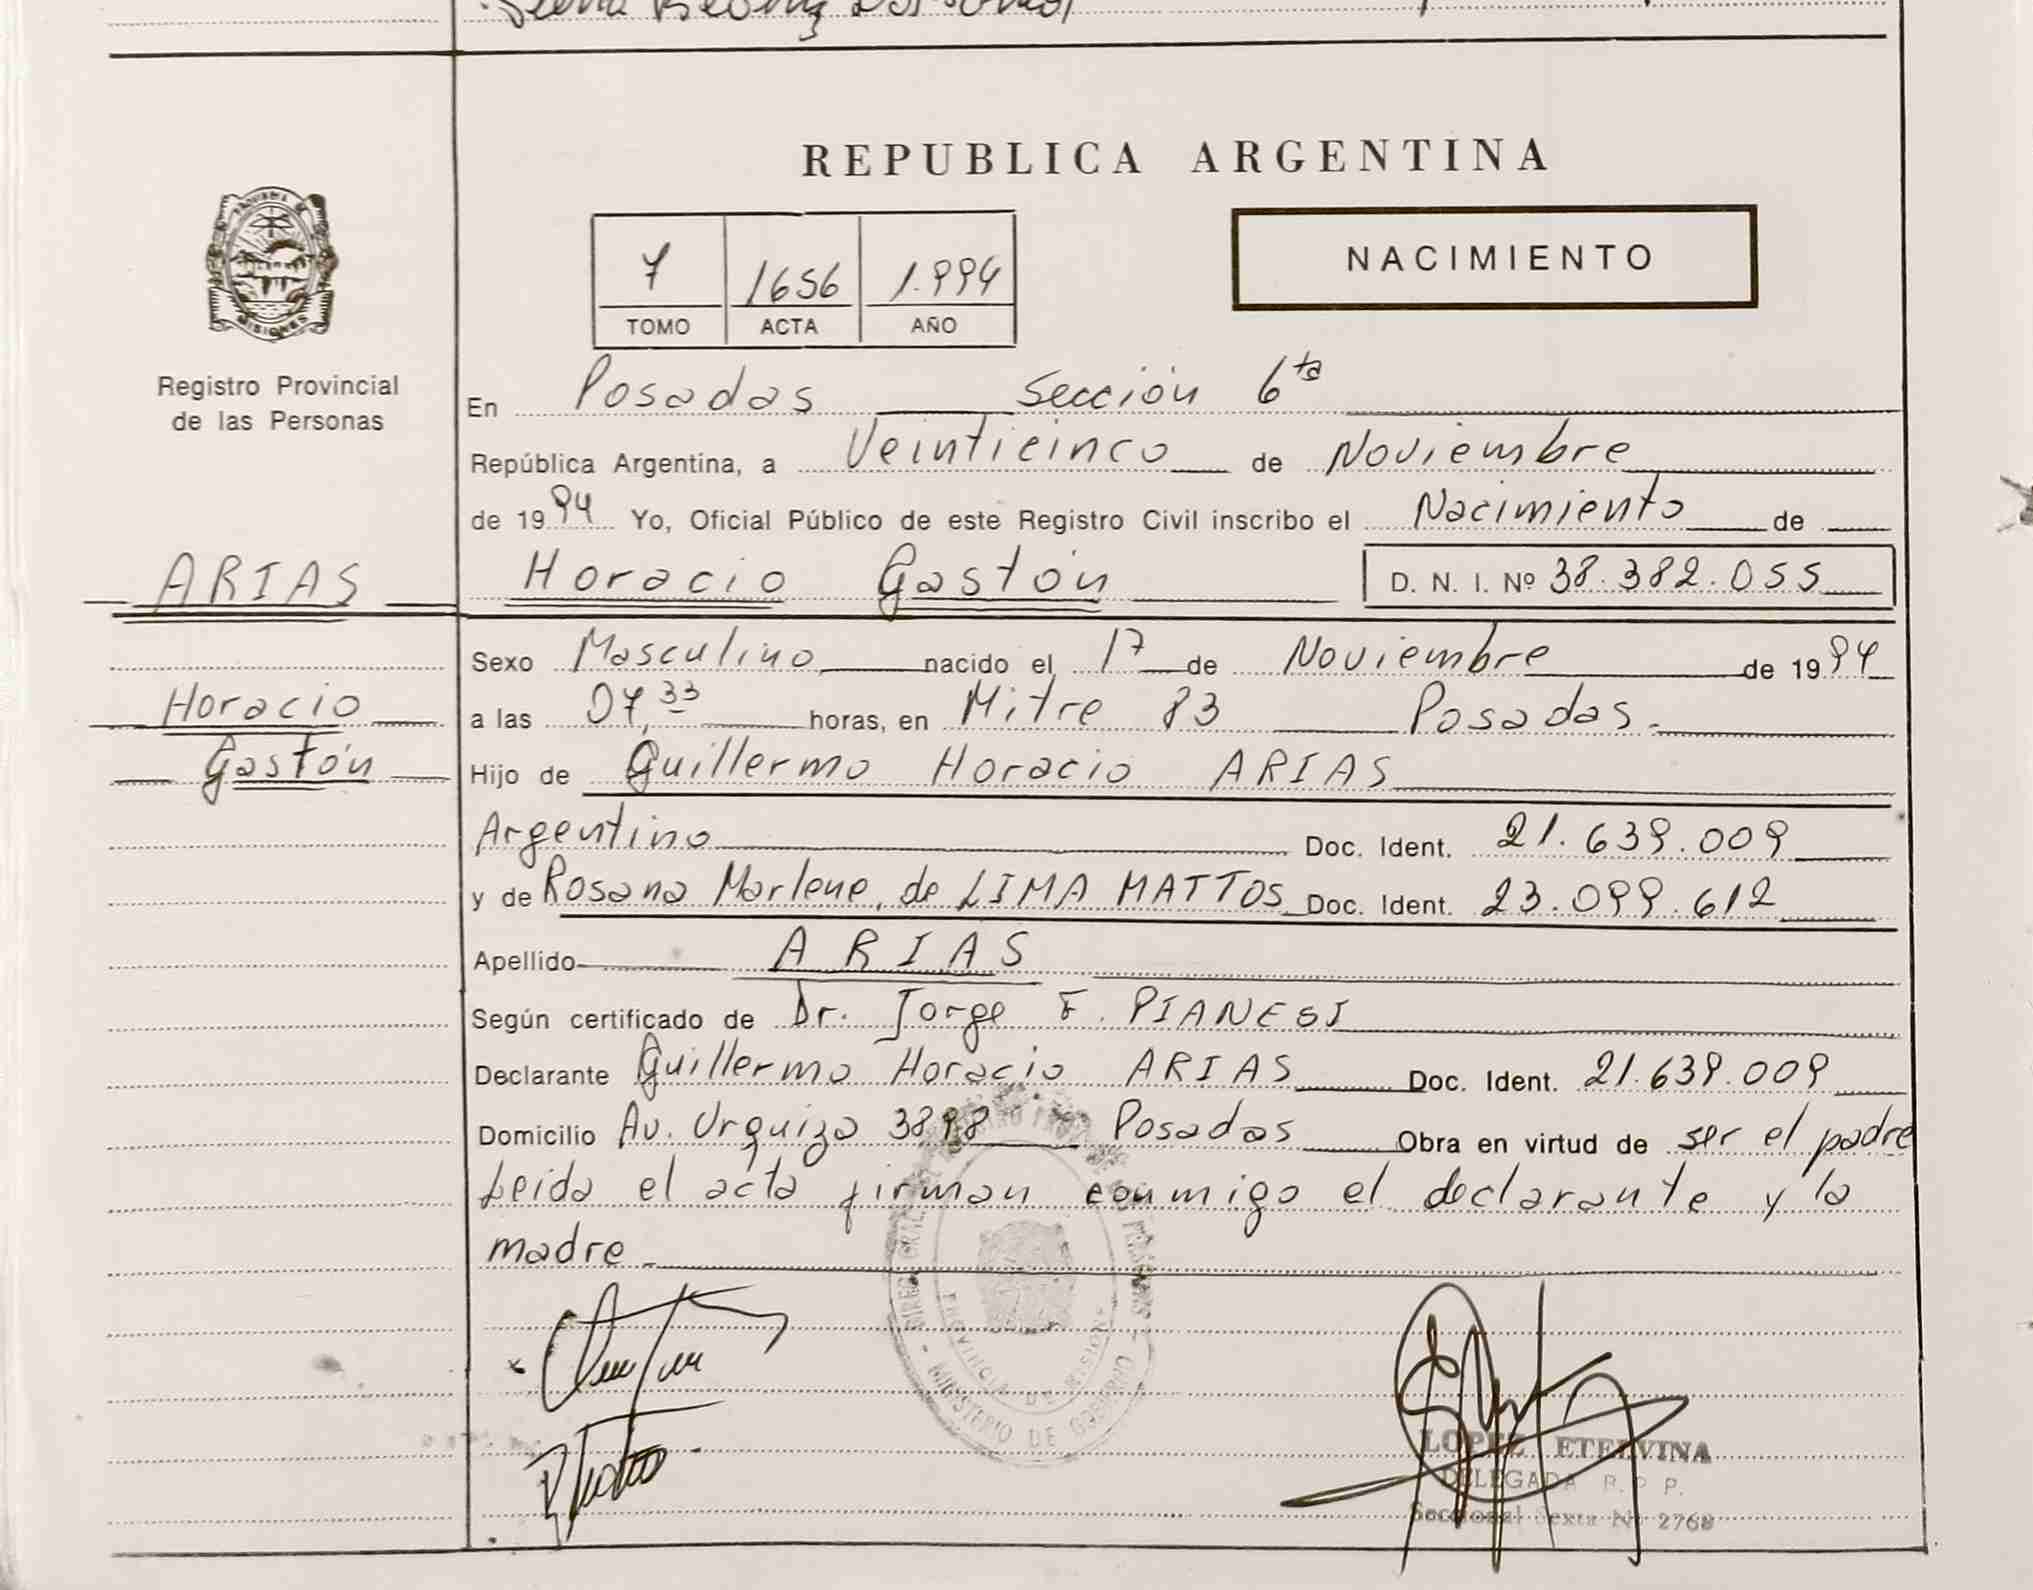 REPUBLICA ARGENTINA
NACIMIENTO
7 1656 1.994
TOMO ACTA AÑO
MISIONES
Registro Provincial
de las Personas
En Posadas Sección 6ta
República Argentina, a Veinticinco de Noviembre
de 1994 Yo, Oficial Público de este Registro Civil inscribo el Nacimiento de
ARIAS Horacio Gastón D. N. I. Nº 38.382.055
Sexo Masculino nacido el 17 de Noviembre de 1994
Horacio a las 07,33 horas, en Mitre 83 Posadas.
Gastón Hijo de Guillermo Horacio ARIAS
Argentino Doc. Ident. 21.639.009
y de Rosana Marlene, de LIMA MATTOS Doc. Ident. 23.099.612
Apellido ARIAS
Según certificado de Dr. Jorge F. PIANESI
Declarante Guillermo Horacio ARIAS Doc. Ident. 21.639.009
Domicilio Av. Urquiza 3898 Posadas Obra en virtud de ser el padre
Leida el acta firman conmigo el declarante y la
madre
PROVINCIA DE MISIONES
MINISTERIO DE GOBIERNO
LOPEZ ETELVINA
DELEGADA R. P. P.
Seccional Sexta Nº 2768